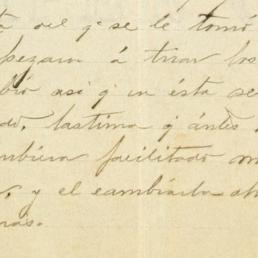 ta del q. se le tomó
pezaron á tirar los
bió así q. en ésta se
do, lastima q. ántes
ubiera facilitado m
, y el cambiarla
ras.